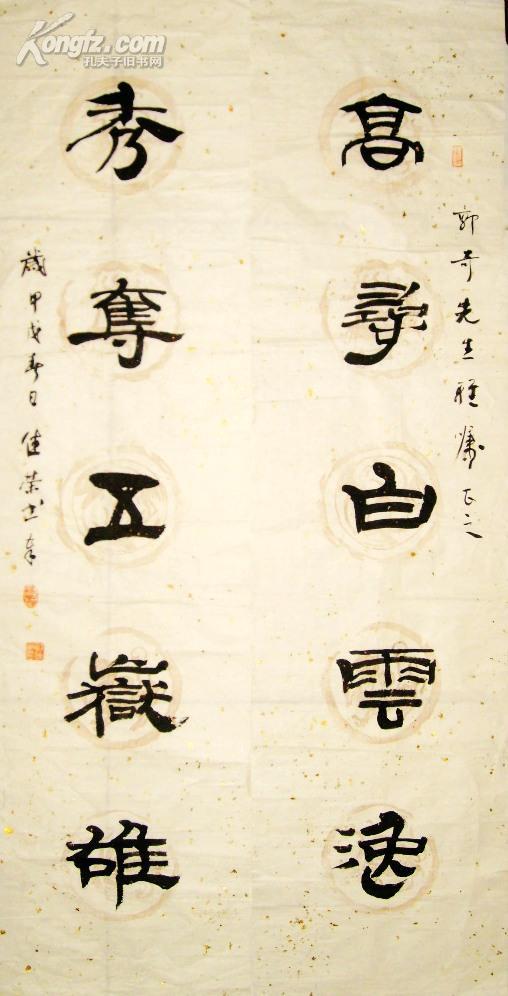 Kongfz.com
孔夫子旧书网
郭奇先生雅嘱正之
高尋白雲逸
秀奪五嶽雄
歲甲戌春日健榮书奉